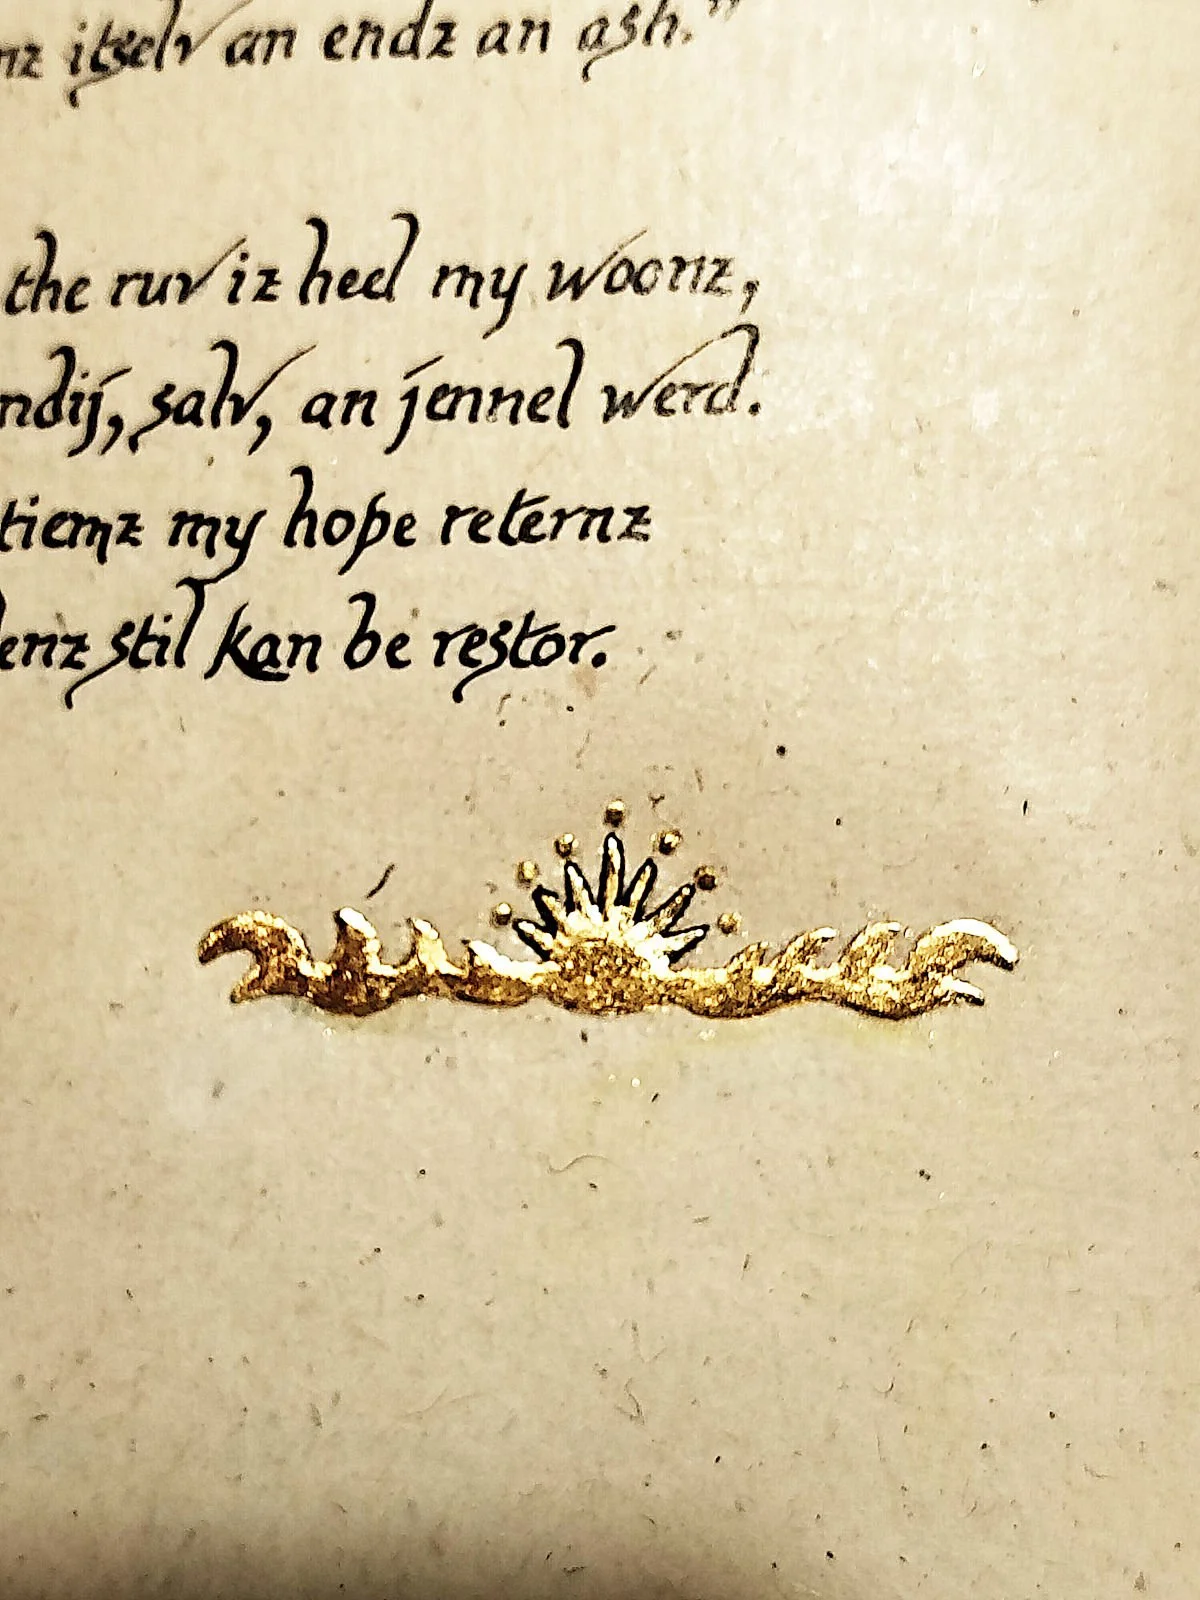 nz itselv an endz an ash."
the ruv iz heel my woonz,
ndij, salv, an jennel werd.
tiemz my hope reternz
enz stil kan be restor.